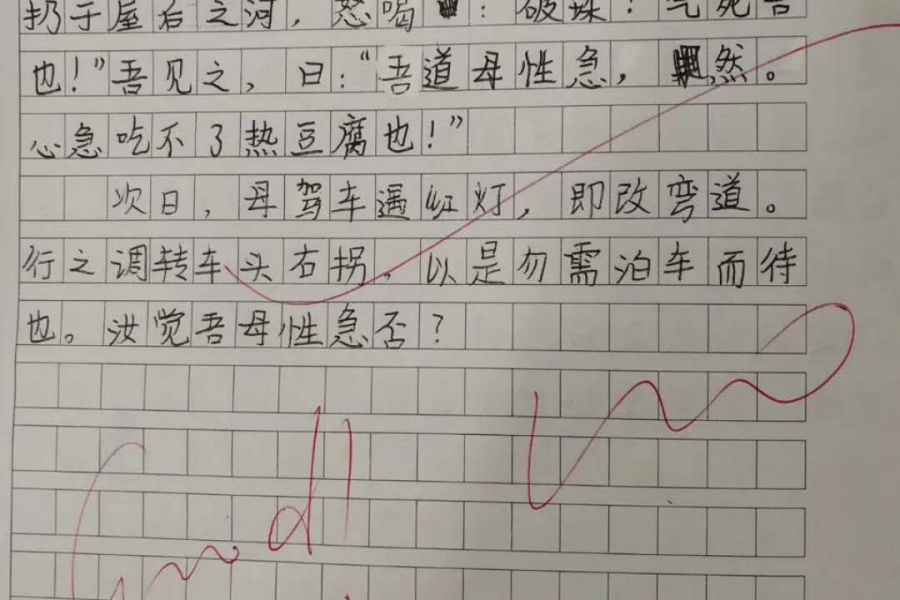 扔于屋右之河，怒喝：破珠！气死吾
也！”吾见之，曰：“吾道母性急，然。
心急吃不了热豆腐也！”
次日，母驾车遇红灯，即改弯道。
行之调转车头右拐，以是勿需泊车而待
也。汝觉吾母性急否？
Good!